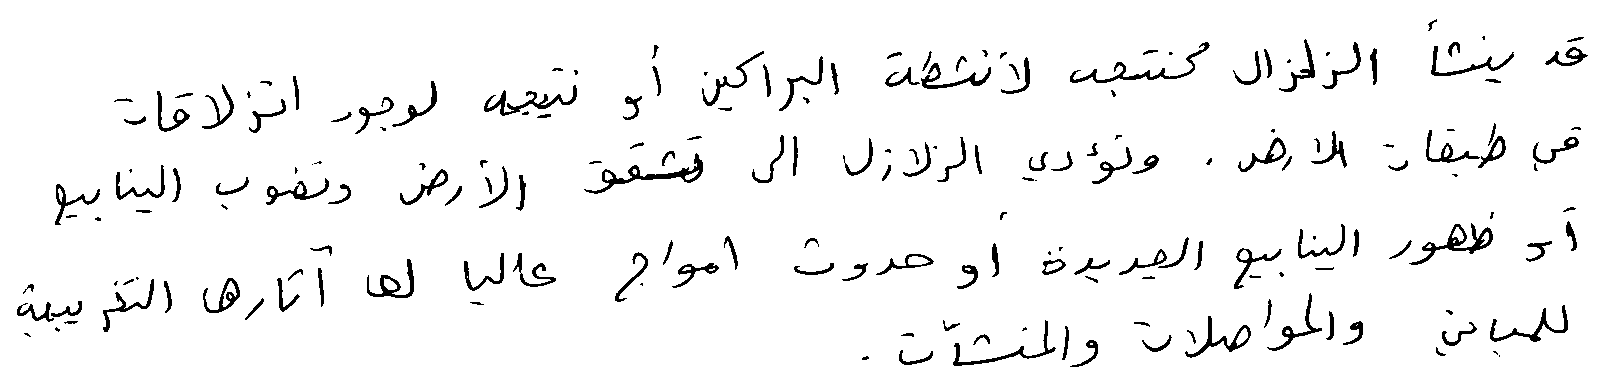 قد ينشأ الزلزال كنتيجه لأنشطة البراكين أو نتيجه لوجود انزلاقات
في طبقات الارض . وتؤدي الزلازل الى تشقق الأرض ونضوب الينابيع
أو ظهور الينابيع الجديدة أو حدوث امواج عاليا لها آثارها التخريبية
للمباني والمواصلات والمنشآت .